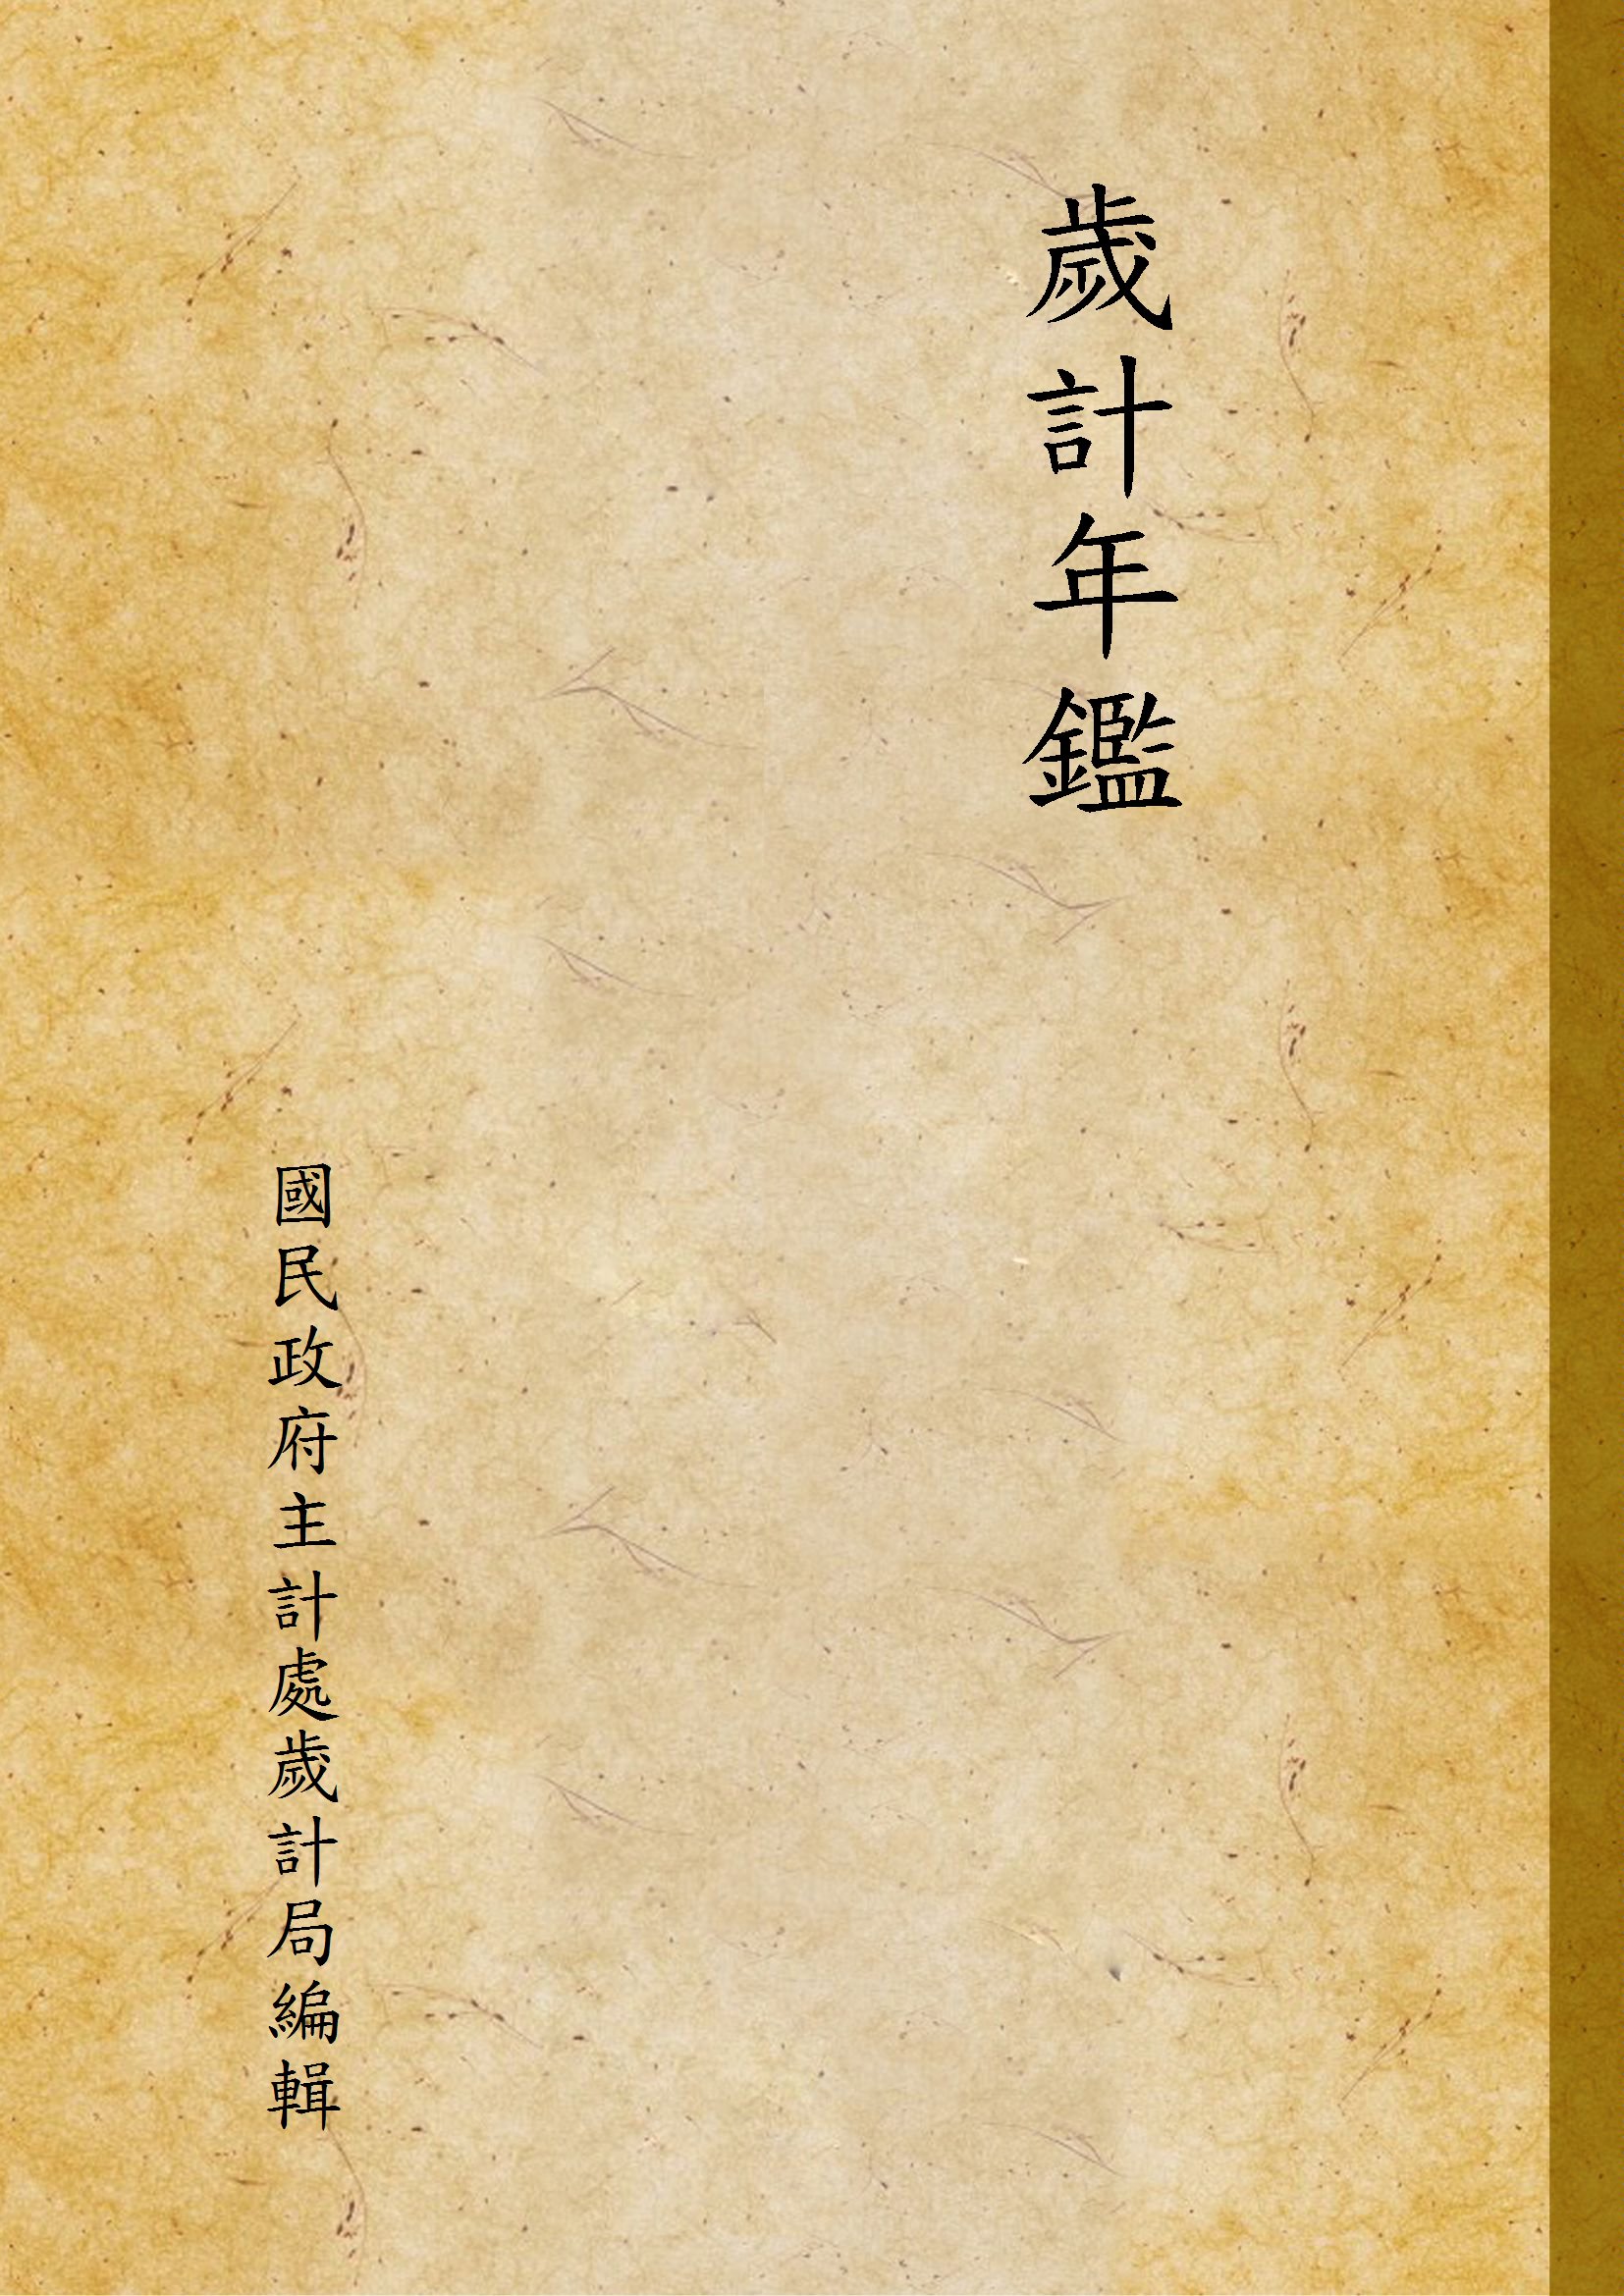 歲計年鑑
國民政府主計處歲計局編輯